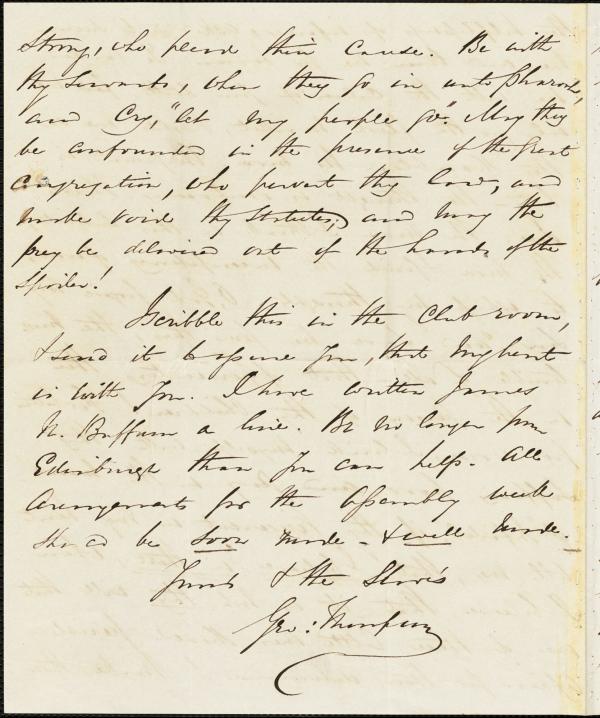 strong, who plead their cause. Be with
thy servants, when they go in unto Pharaoh,
and cry, "let my people go". May they
be confounded in the presence of the Great
Congregation, who pervert thy law, and
make void thy statutes; and may the
prey be delivered out of the hands of the
spoiler!
I scribble this in the Club room,
& send it to assure you, that my heart
is with you. I have written James
N. Buffum a line. Be no longer from
Edinburgh than you can help. All
arrangements for the Assembly week
sho'd be soon made - & well made.
Yours & the Slave's
Geo: Thompson